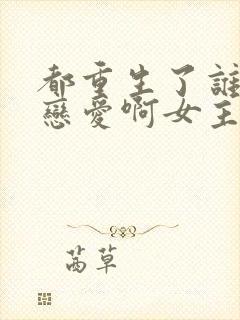 都重生了誰
戀愛啊女主
茜草